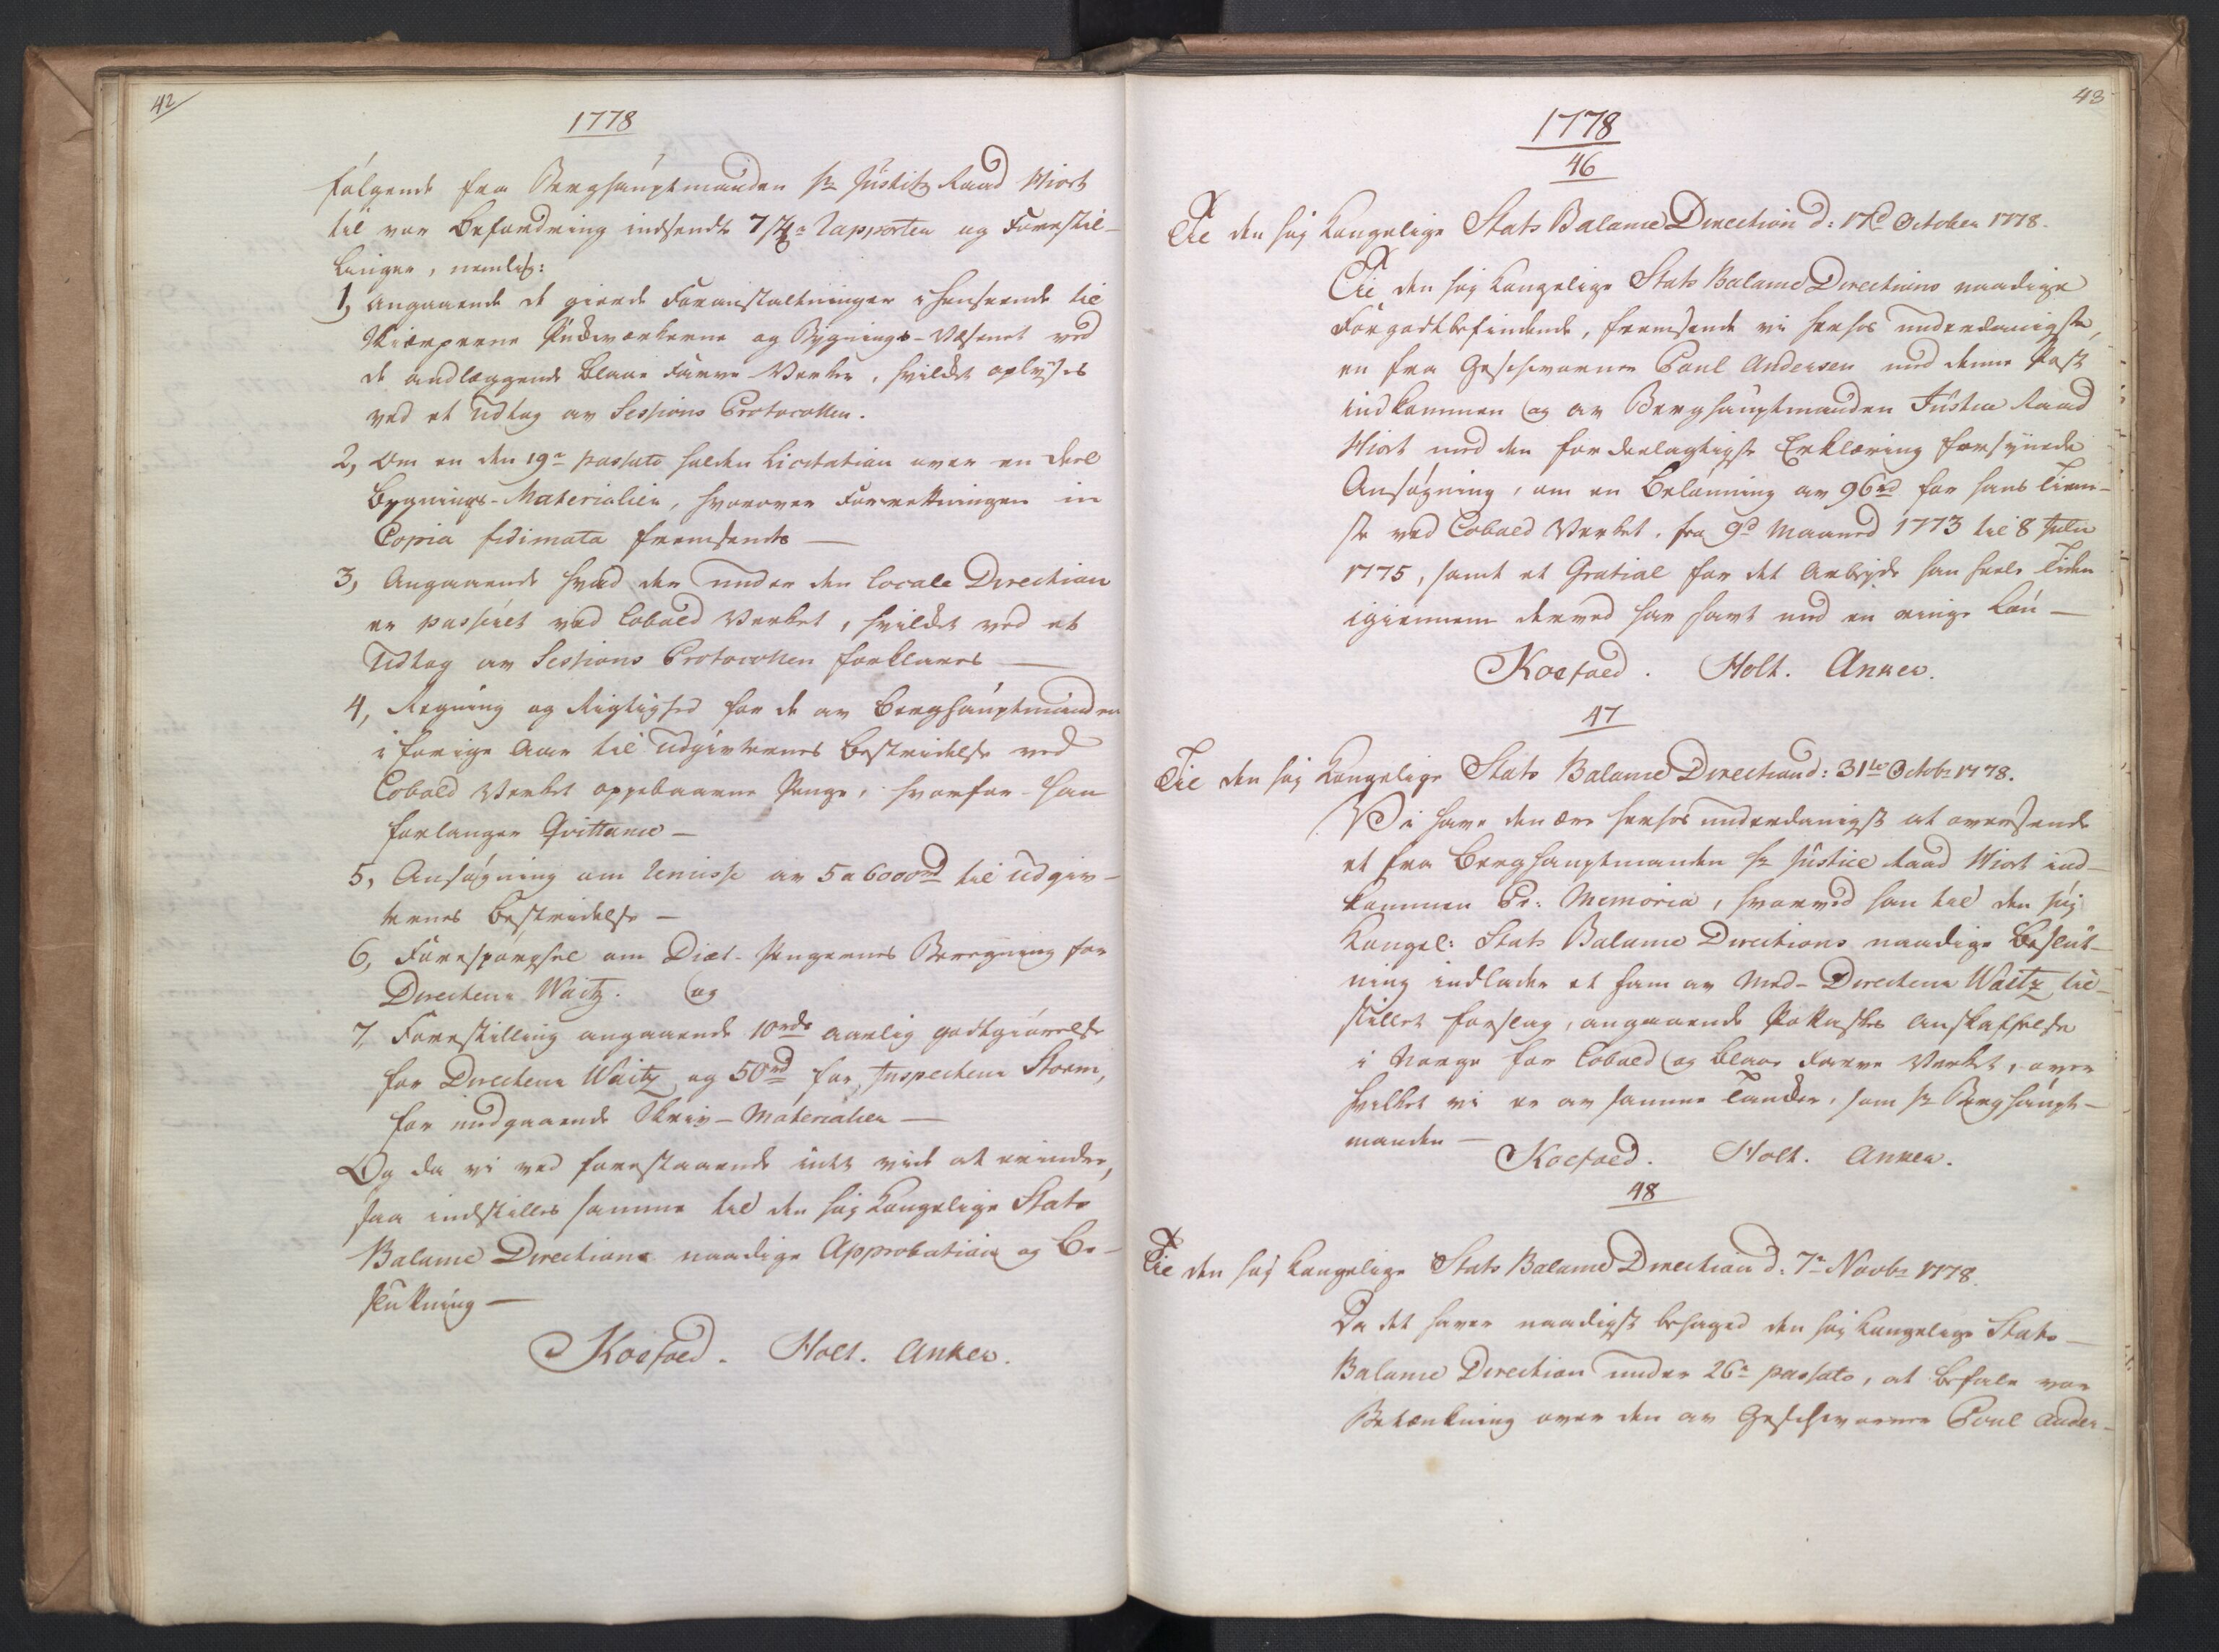 42
1778
følgende fra Berghauptmanden Hr Justitz Raad Hiort
til vor Befordring indsendte 7 Rapporter og Forestil-
linger, nemlig:
1, Angaaende de giorde Foranstaltninger i Henseende til
Skierperne Pudsverkerne og Bygnings-Væsenet ved
de anlæggende Blaae Farve Verker, hvilket oplyses
ved et Udtog av Sessions Protocollen.
2, Om en den 19de passato holden Licitation over en Deel
Bygnings-Materialier, hvorover Forretningen in
Copia fidimata fremsendes —
3, Angaaende hvad der under den locale Direction
er passeret ved Cobold Verket, hvilket ved et
Udtog av Sessions Protocollen forklares —
4, Regning og Rigtighed for de av Berghauptmanden
i forige Aar til Udgivternes Bestridelse ved
Cobold Verket oppebaarne Penge, hvorfor han
forlanger Qvittance —
5, Ansøgning om Remisse av 5 a 6000rd til Udgiv-
ternes Bestridelse —
6, Forespørgsel om Diæt-Pengenes Beregning for
Directeur Waitz. og
7, Forestilling angaaende 10rds aarlig godtgiørelse
for Directeur Waitz og 50rd for Inspecteur Storm,
for medgaaende Skriv-Materialier —
Og da vi ved forestaaende intet vide at erindre,
saa indstilles samme til den høj Kongelige Stats
Balance Directions naadige Approbation og Be-
slutning —
Koefoed. Holt. Anker.
43
1778
46
Til den høj Kongelige Stats Balance Direction d: 17d October 1778.
Til den høj Kongelige Stats Balance Directions naadige
Forgodtbefindende, fremsende vi herhos underdanigste,
en fra Geschworner Poul Andersen med denne Post
indkommen og av Berghauptmanden Justice Raad
Hiort med den fordeelagtigste Erklæring forsynede
Ansøgning, om en Belønning av 96rd for hans Tiene-
ste ved Cobold Verket, fra 9d Maaned 1773 til 8 Julii
1775, samt et Gratial for det Arbejde han heele Tiden
igiennem derved har havt med en ringe Løn —
Koefoed. Holt. Anker.
47
Til den høj Kongelige Stats Balance Direction d: 31te Octobr 1778.
Vi have den ære herhos underdanigst at oversende
et fra Berghauptmanden Hr Justice Raad Hiort ind-
kommen Pr: Memoria, hvorved han til den høj
Kongel: Stats Balance Directions naadige Beslut-
ning indlader et ham av Med-Directeur Waitz til-
stillet forslag, angaaende Pottaskes Anskaffelse
i Norge for Cobold og Blaae Farve Verket, over
hvilket vi er av samme Tanker, som Hr Berghaupt-
manden —
Koefoed. Holt. Anker.
48
Til den høj Kongelige Stats Balance Direction d: 7de Novbr 1778.
Da det haver naadigst behaged den høj Kongelige Stats
Balance Direction under 26de passato, at befale vor
Betænkning over den av Geschworner Poul Ander-